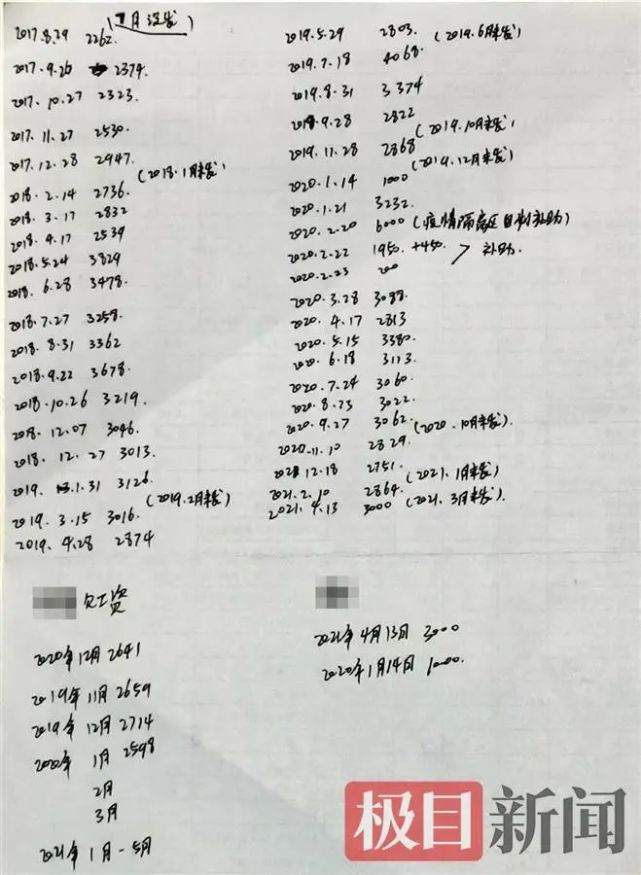 (7月没发)
2017.8.29 2262.
2017.9.26 2374.
2017.10.27 2323.
2017.11.27 2530.
2017.12.28 2947.
(2018.1月未发)
2018.2.14 2736.
2018.3.17 2832
2018.4.17 2539
2018.5.24 3829
2018.6.28 3478.
2018.7.27 3258.
2018.8.31 3362
2018.9.22 3678.
2018.10.26 3219.
2018.12.07 3046.
2018.12.27 3013.
2019.1.31 3126.
(2019.2月未发)
2019.3.15 3016.
2019.4.28 2874
2019.5.29 2803. (2019.6月未发)
2019.7.18 4068.
2019.8.31 3374
2019.9.28 2822
(2019.10月未发)
2019.11.28 2868
(2019.12月未发)
2020.1.14 1000
2020.1.21 3232.
2020.2.20 6000 (疫情隔离区自制补助)
2020.2.22 1950.+450. 补助.
2020.2.23 200
2020.3.28 3088.
2020.4.17 2813
2020.5.15 3380.
2020.6.18 3113.
2020.7.24 3060.
2020.8.23 3022.
2020.9.27 3062. (2020.10月未发).
2020.11.10 2829.
12.18 2751.
(2021.1月未发)
2021.2.10 2864.
2021.4.13 3000 (2021.3月未发).
欠工资
2020年12月 2641
2019年11月 2659
2019年12月 2714
2020年 1月 2598
2月
3月
2021年 1月-5月
2021年4月13日 3000
2020年1月14日 1000.
极目新闻